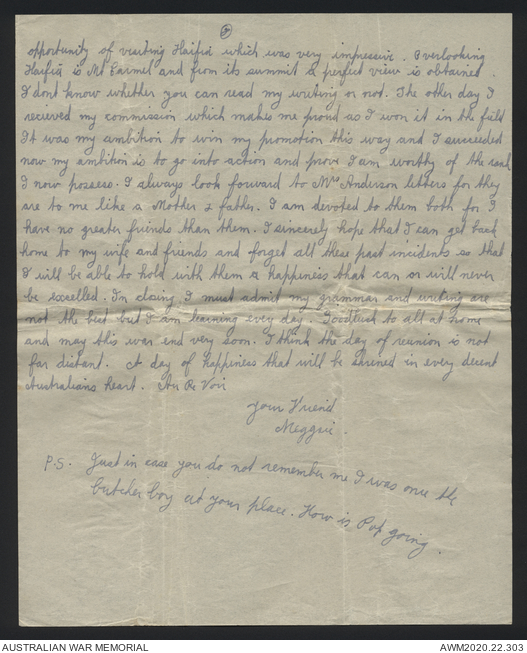 opportunity of visiting Haifia which was very impressive. Overlooking
Haifia is Mt Carmel and from its summit a perfect view is obtained.
I dont know whether you can read my writing or not. The other day I
recieved my commission which makes me proud as I won it in the field
It was my ambition to win my promotion this way and I succeeded
now my ambition is to go into action and prove I am worthy of the
I now possess. I always look forward to Mrs Anderson letters for they
are to me like a Mother & father. I am devoted to them both for I
have no greater friends than them. I sincerely hope that I can get back
home to my wife and friends and forget all these past incidents so that
I will be able to hold with them a happiness that can or will never
be excelled. In closing I must admit my grammar and writing are
not the best but I am learning every day. Goodluck to all at home
and may this war end very soon. I think the day of reunion is not
far distant. A day of happiness that will be shrined in every decent
Australians heart. Au Re Voir
Your Friend
Meggsie.
P.S. Just in case you do not remember me I was once the
butcher boy at your place. How is Pop going.
AUSTRALIAN WAR MEMORIAL
AWM2020.22.303